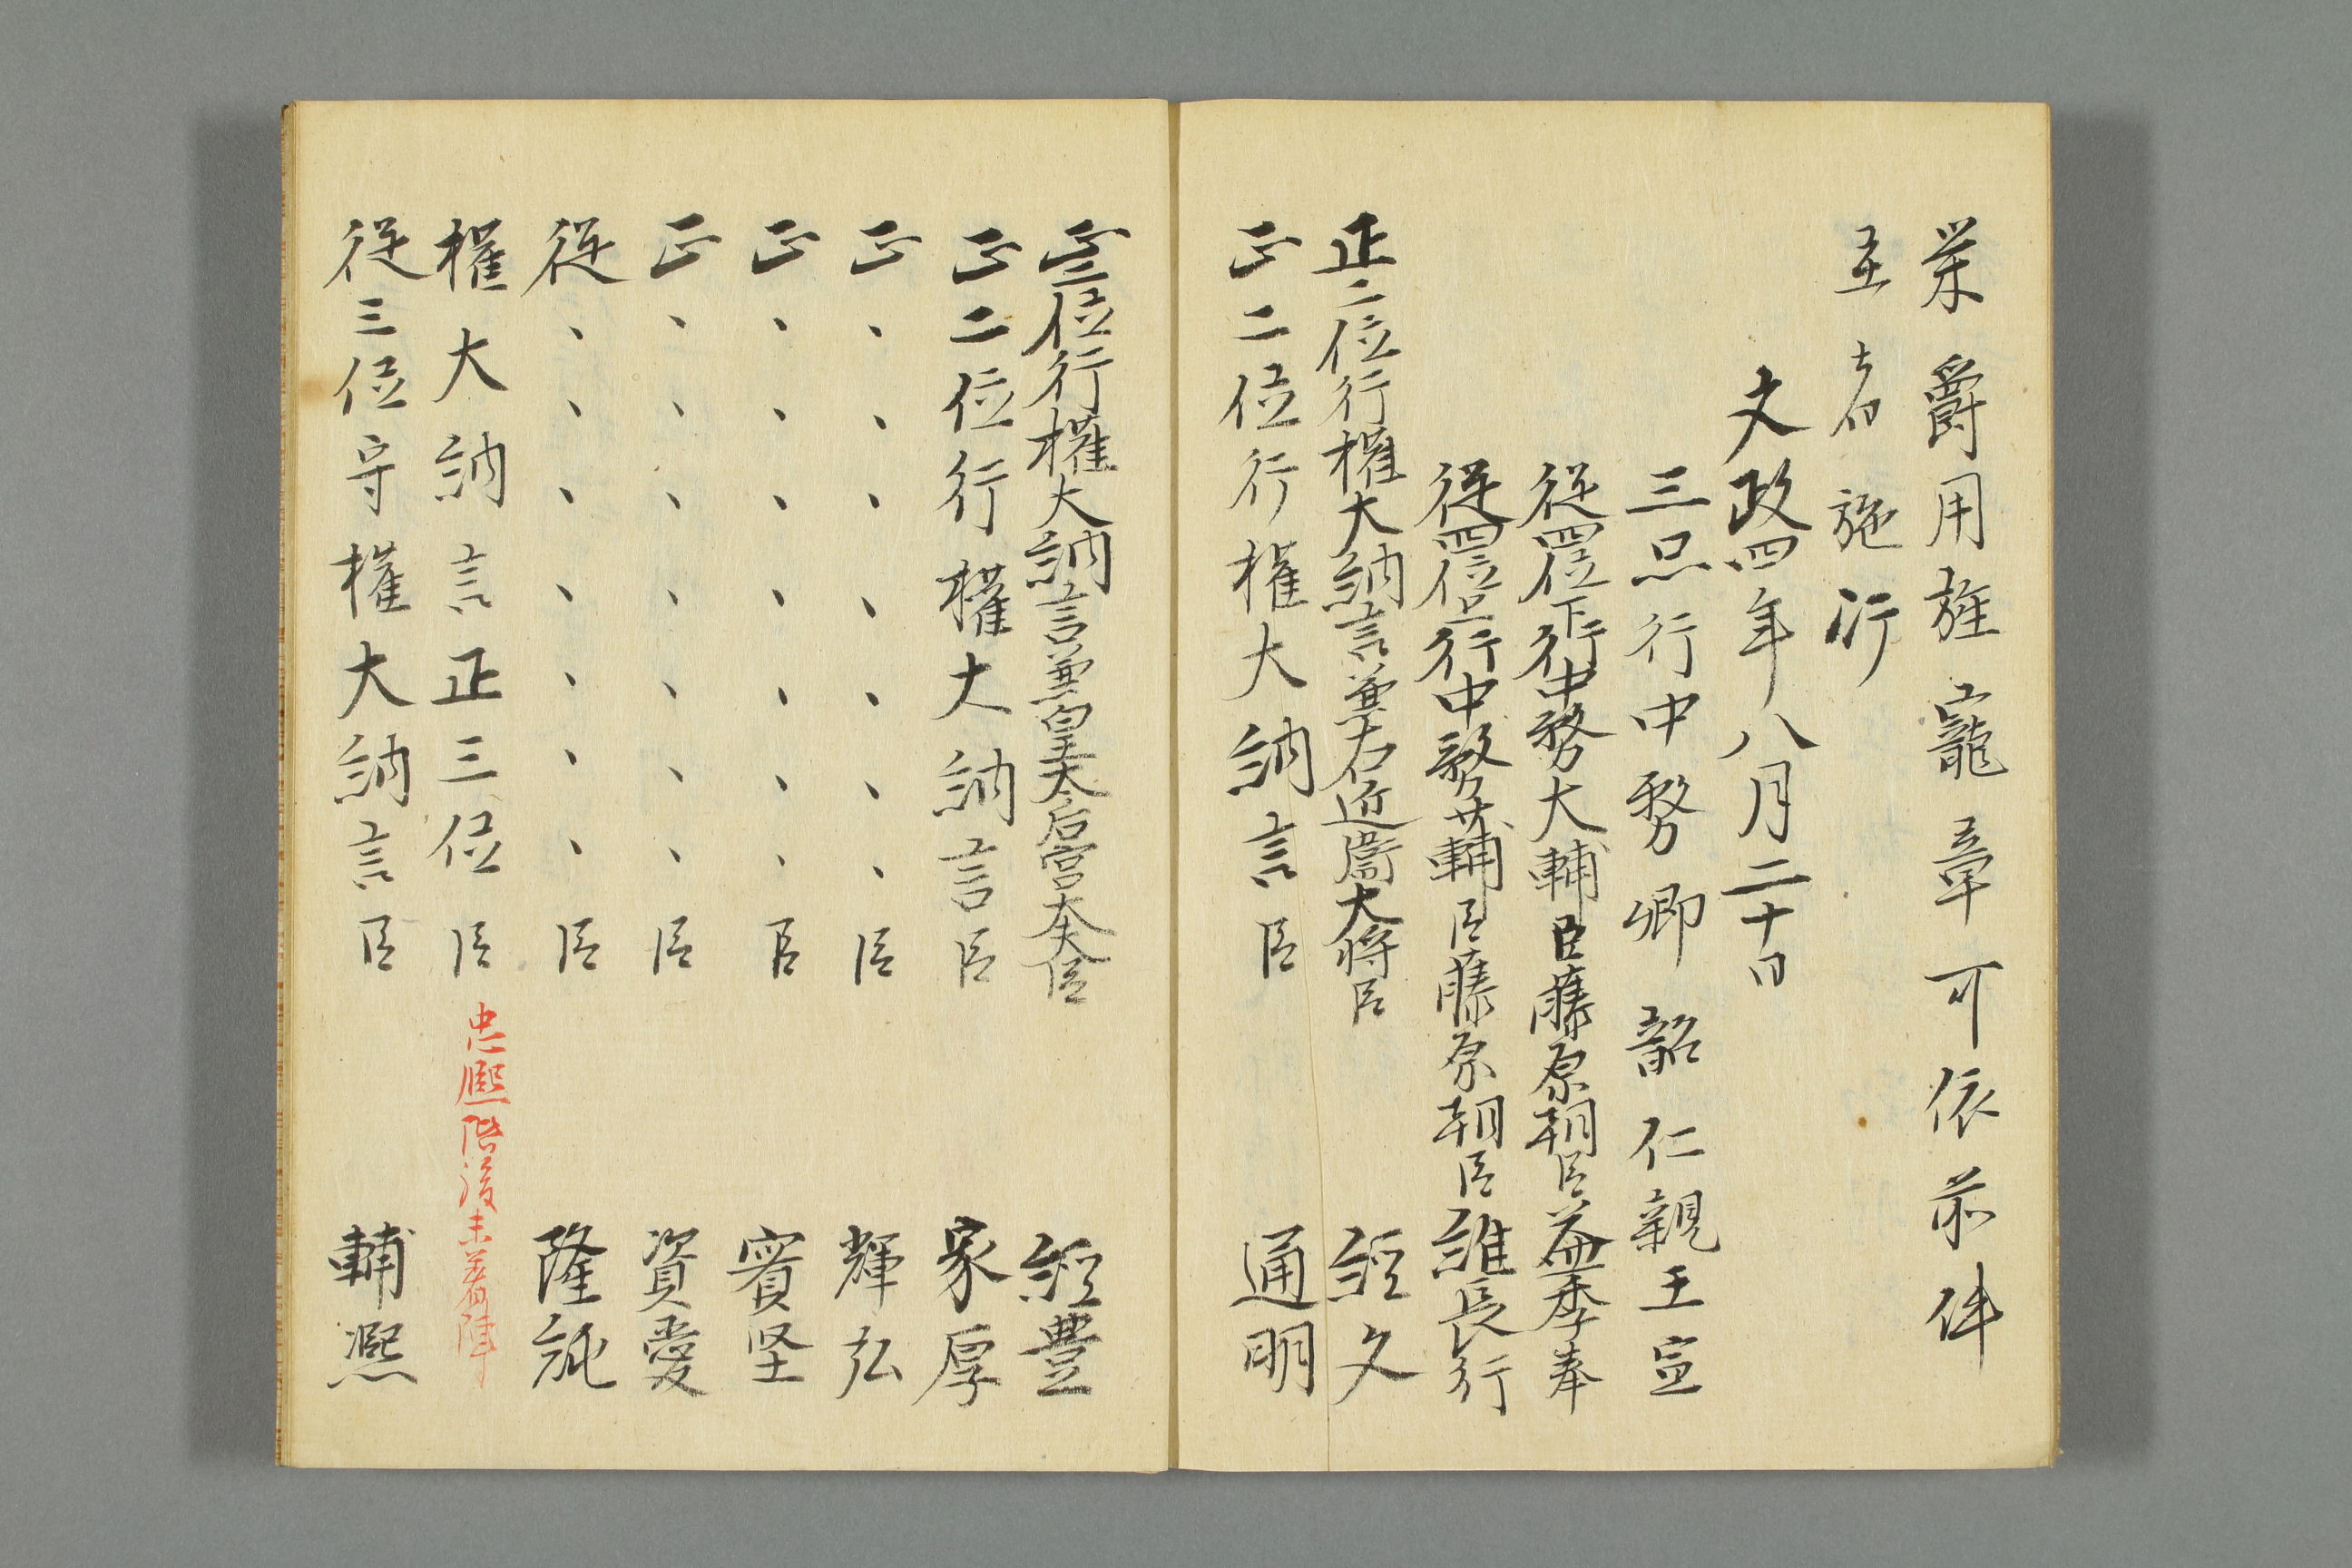 栄爵用旌寵章可依前件
主者施行
文政四年八月二十日
三品行中務卿韶仁親王宣
従四位下行中務大輔臣藤原朝臣益季奉
従四位上行中務少輔臣藤原朝臣維長行
正二位行権大納言兼右近衛大将臣 経文
正二位行権大納言臣 通明
正二位行権大納言兼皇太后宮大夫臣 経豊
正二位行権大納言臣 家厚
正、、、、、、、臣 輝弘
正、、、、、、、臣 賓堅
正、、、、、、、臣 資愛
従、、、、、、、臣 隆純
権大納言正三位臣 忠熈階後未著陣
従三位守権大納言臣 輔熈